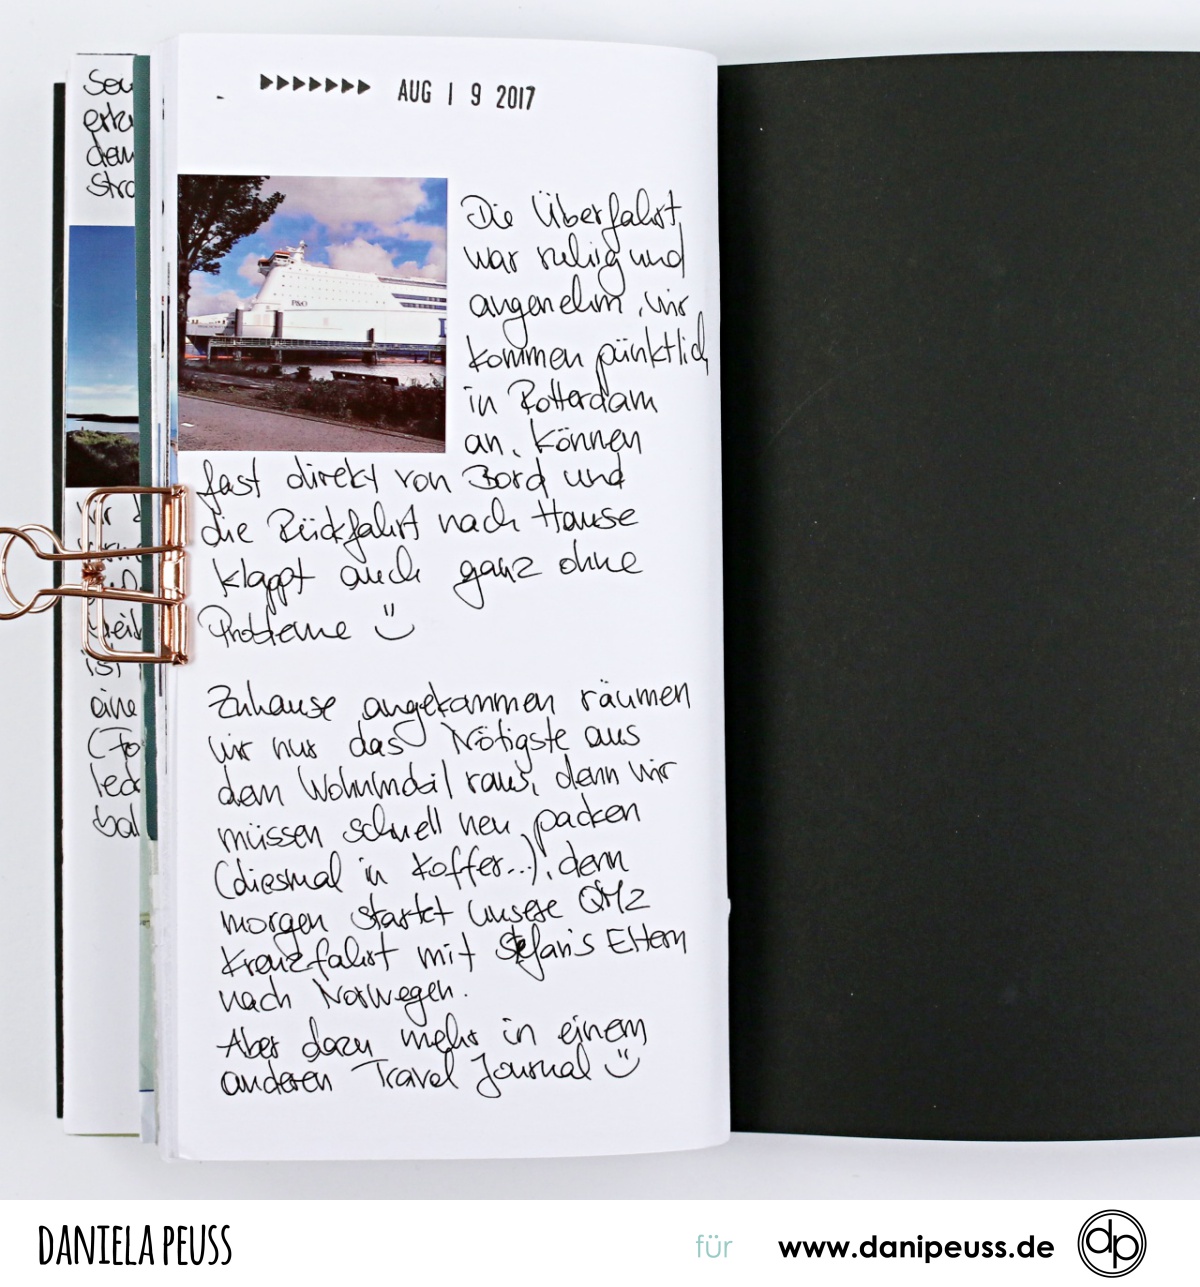 AUG 19 2017
Die Überfahrt
war ruhig und
angenehm, wir
kommen pünktlich
in Rotterdam
an, können
fast direkt von Bord und
die Rückfahrt nach Hause
klappt auch ganz ohne
Probleme
Zuhause angekommen räumen
wir nur das Nötigste aus
dem Wohnmobil raus, denn wir
müssen schnell neu packen
(diesmal in Koffer...), denn
morgen startet unsere QM2
Kreuzfahrt mit Stefan's Eltern
nach Norwegen.
Aber dazu mehr in einem
anderen Travel Journal
P&O
DANIELA PEUSS
für www.danipeuss.de
dp